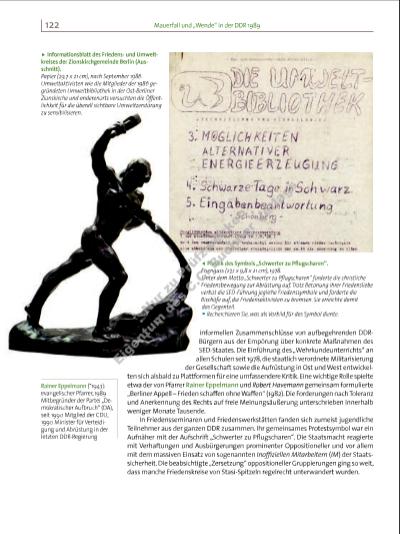 122
Mauerfall und „Wende" in der DDR 1989
► Informationsblatt des Friedens- und Umwelt-
kreises der Zionskirchgemeinde Berlin (Aus-
schnitt).
Papier (29,7 x 21 cm), nach September 1986.
Umweltaktivisten wie die Mitglieder der 1986 ge-
gründeten Umweltbibliothek in der Ost-Berliner
Zionskirche und andernorts versuchten die Öffent-
lichkeit für die überall sichtbare Umweltzerstörung
zu sensibilisieren.
DIE UMWELT-
BIBLIOTHEK
3. MÖGLICHKEITEN
ALTERNATIVER
ENERGIEERZEUGUNG
4. Schwarze Tage in Schwarz
5. Eingabenbeantwortung
-Schönberg-
des Symbols „Schwerter zu Pflugscharen".
Unter dem Motto „Schwerter zu Pflugscharen" forderte die christliche
Friedensbewegung zur Abrüstung auf. Trotz Betonung ihrer Friedensliebe
verbot die SED-Führung jegliche Friedenssymbole und forderte die
Bischöfe auf, die Friedensaktivisten zu bremsen. Sie erreichte damit
das Gegenteil.
Recherchieren Sie, was als Vorbild für das Symbol diente.
informellen Zusammenschlüsse von aufbegehrenden DDR-
Bürgern aus der Empörung über konkrete Maßnahmen des
SED-Staates. Die Einführung des „Wehrkundeunterrichts" an
allen Schulen seit 1978, die staatlich verordnete Militarisierung
der Gesellschaft sowie die Aufrüstung in Ost und West entwickel-
ten sich alsbald zu Plattformen für eine umfassendere Kritik. Eine wichtige Rolle spielte
etwa der von Pfarrer Rainer Eppelmann und Robert Havemann gemeinsam formulierte
„Berliner Appell – Frieden schaffen ohne Waffen" (1982). Die Forderungen nach Toleranz
und Anerkennung des Rechts auf freie Meinungsäußerung unterschrieben innerhalb
weniger Monate Tausende.
In Friedensseminaren und Friedenswerkstätten fanden sich zumeist jugendliche
Teilnehmer aus der ganzen DDR zusammen. Ihr gemeinsames Protestsymbol war ein
Aufnäher mit der Aufschrift „Schwerter zu Pflugscharen". Die Staatsmacht reagierte
mit Verhaftungen und Ausbürgerungen prominenter Oppositioneller und vor allem
mit dem massiven Einsatz von sogenannten Inoffiziellen Mitarbeitern (IM) der Staats-
sicherheit. Die beabsichtigte „Zersetzung" oppositioneller Gruppierungen ging so weit,
dass manche Friedenskreise von Stasi-Spitzeln regelrecht unterwandert wurden.
Rainer Eppelmann (*1943):
evangelischer Pfarrer, 1989
Mitbegründer der Partei „De-
mokratischer Aufbruch" (DA),
seit 1990 Mitglied der CDU,
1990 Minister für Verteidi-
gung und Abrüstung in der
letzten DDR-Regierung